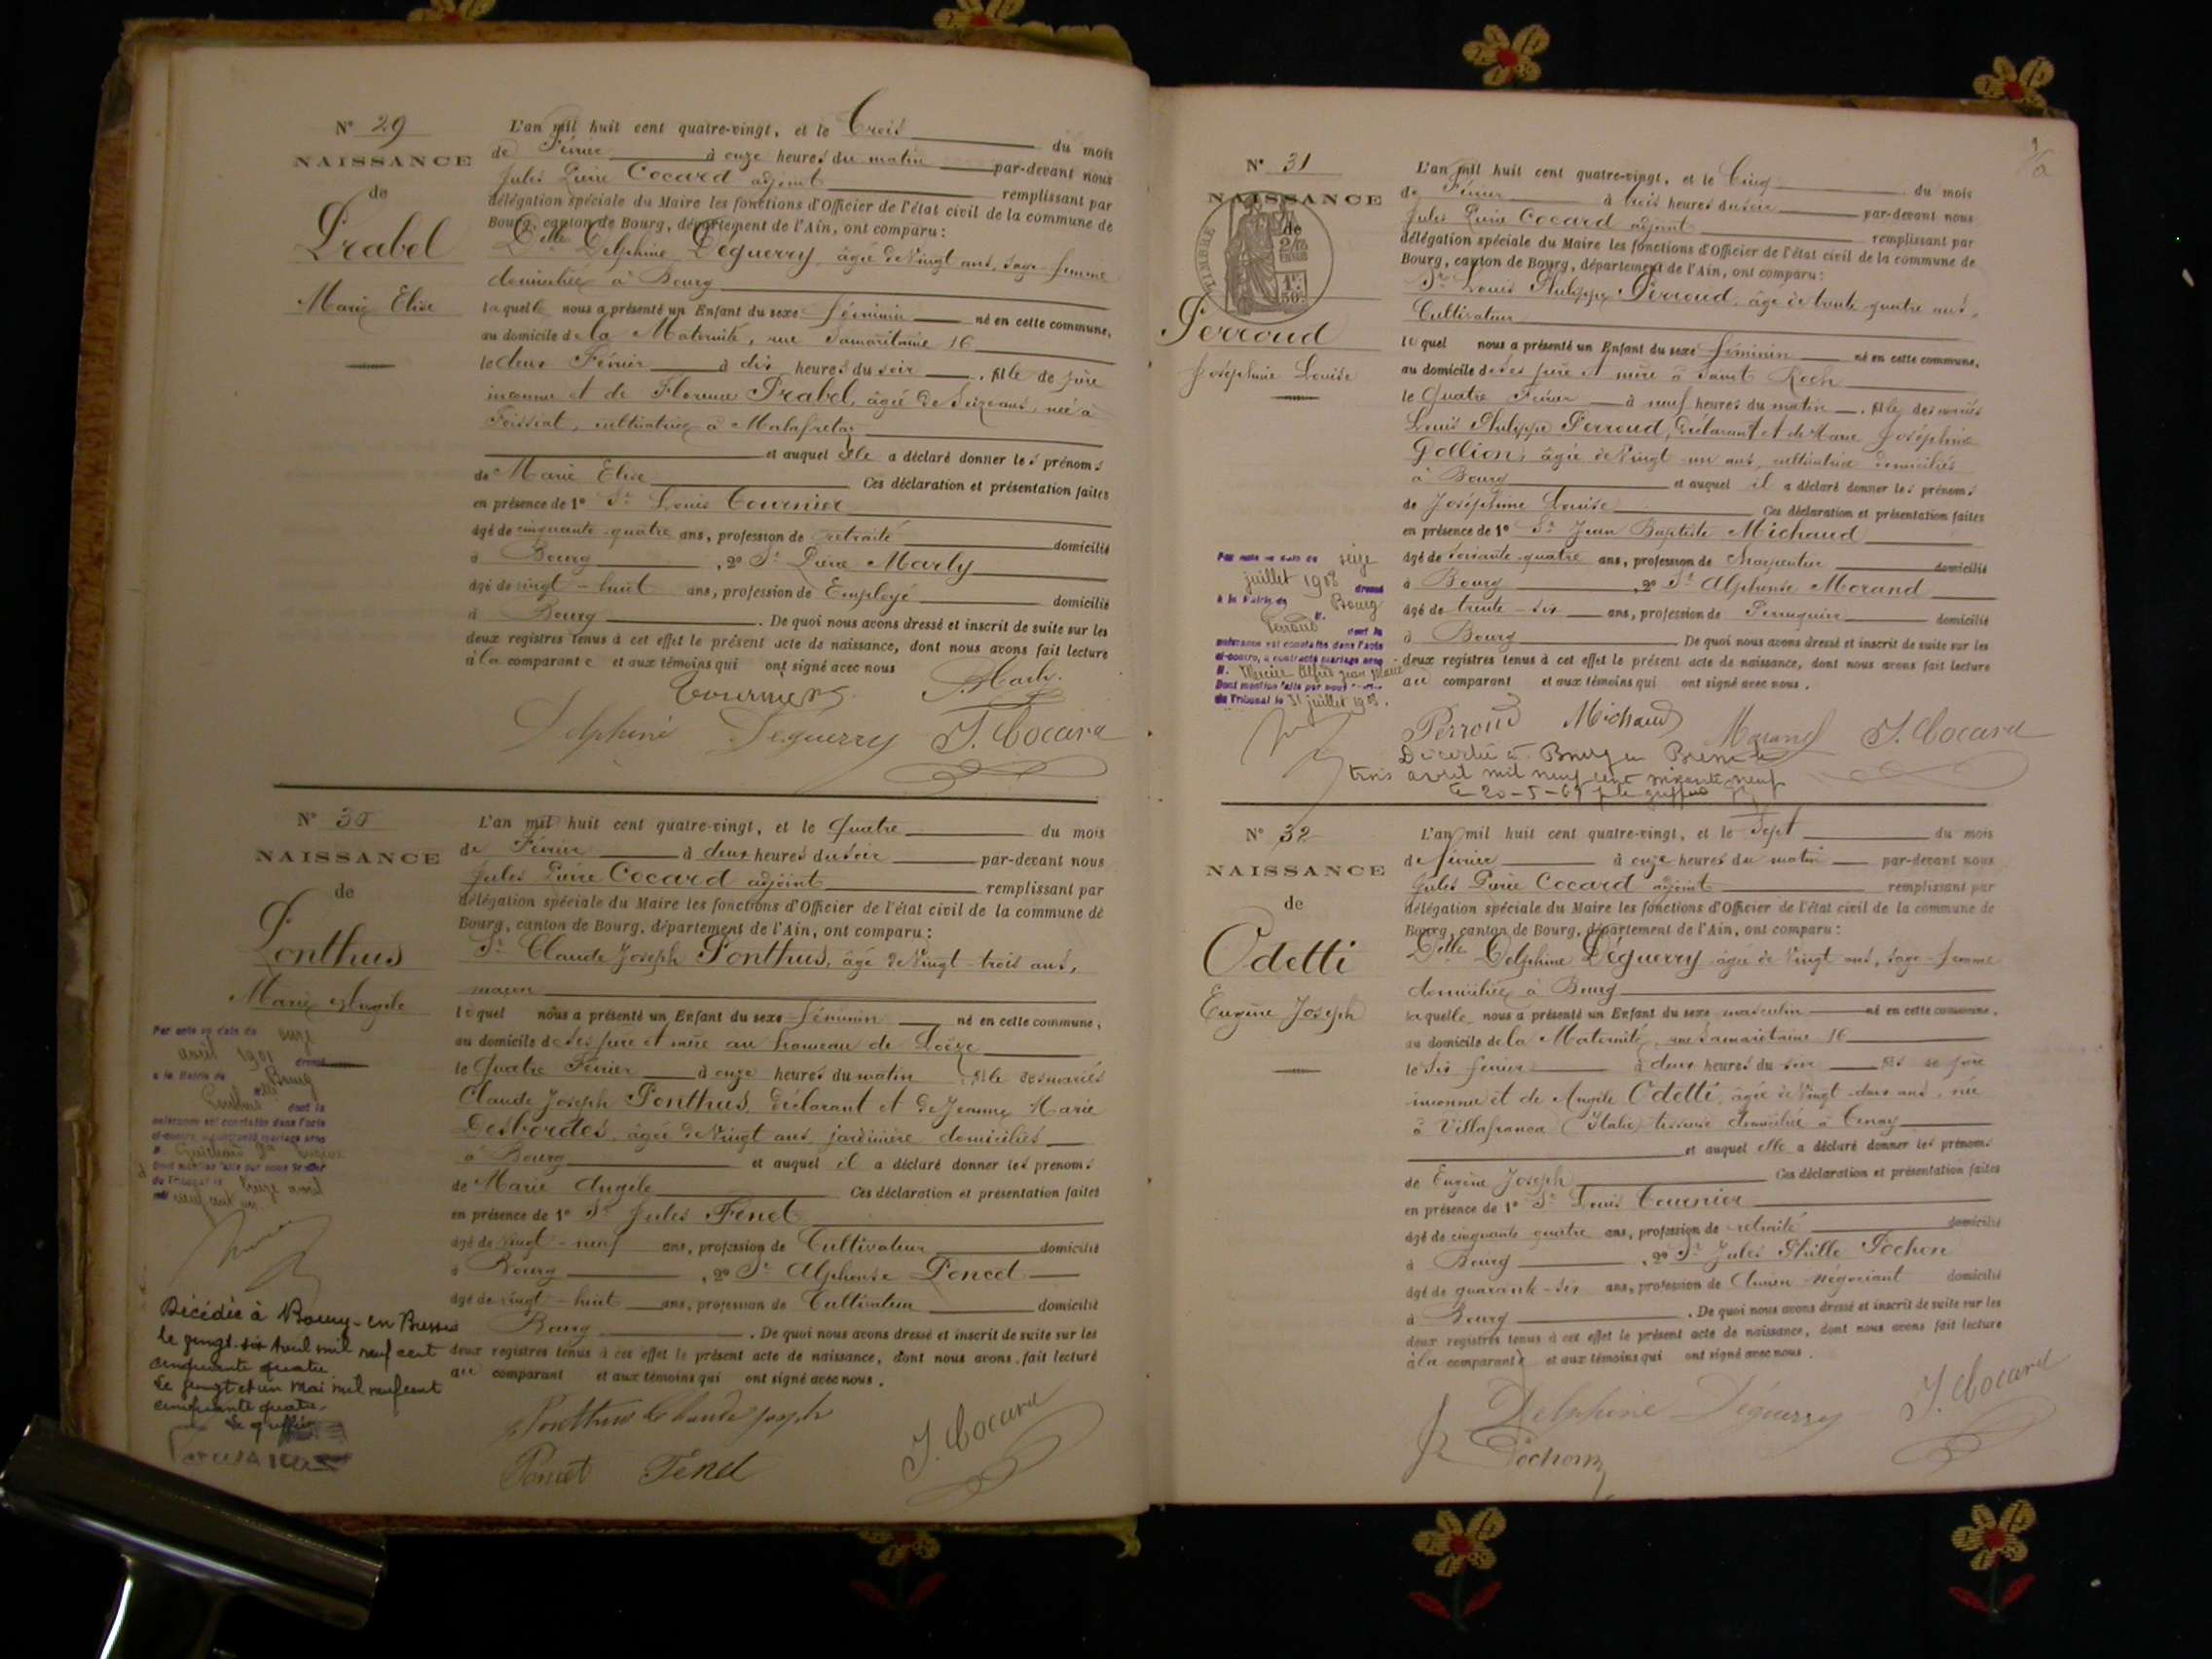 N° 29
NAISSANCE
de
Prabel
Marie Elise
L'an mil huit cent quatre-vingt, et le Trois du mois
de Février à onze heures du matin par-devant nous
Jules Pierre Cocard adjoint remplissant par
délégation spéciale du Maire les fonctions d'Officier de l'état civil de la commune de
Bourg, canton de Bourg, département de l'Ain, ont comparu :
Delle Delphine Déguerry, âgée de Vingt ans, sage-femme
domiciliée à Bourg
laquelle nous a présenté un Enfant du sexe féminin né en cette commune,
au domicile de la Maternité, rue Samaritaine 16
le deux Février à dix heures du soir, fille de père
inconnu et de Florence Prabel, âgée de Seize ans, née à
Foissiat, cultivatrice à Malafretaz
et auquel elle a déclaré donner les prénoms
de Marie Elise Ces déclaration et présentation faites
en présence de 1° Sr Louis Tournier
âgé de cinquante-quatre ans, profession de retraité domicilié
à Bourg, 2° Sr Pierre Marly
âgé de vingt-huit ans, profession de Employé domicilié
à Bourg. De quoi nous avons dressé et inscrit de suite sur les
deux registres tenus à cet effet le présent acte de naissance, dont nous avons fait lecture
à la comparante et aux témoins qui ont signé avec nous
Tournier P. Marly
Delphine Déguerry J. Cocard
N° 30
NAISSANCE
de
Ponthus
Marie Angele
Par acte en date du onze
avril 1901 dressé
à la Mairie de Bourg
Ponthus dont la
naissance est constatée dans l'acte
ci-contre, a contracté mariage avec
M. Guichard
Dont mention faite par nous Greffier
du Tribunal le treize avril
mil neuf cent un
Décédée à Bourg-en-Bresse
le vingt-six avril mil neuf cent
cinquante quatre
Le vingt et un Mai mil neuf cent
cinquante quatre
Le greffier
L'an mil huit cent quatre-vingt, et le Quatre du mois
de Février à deux heures du soir par-devant nous
Jules Pierre Cocard adjoint remplissant par
délégation spéciale du Maire les fonctions d'Officier de l'état civil de la commune de
Bourg, canton de Bourg, département de l'Ain, ont comparu :
Sr Claude Joseph Ponthus, âgé de Vingt-trois ans,
maçon
lequel nous a présenté un Enfant du sexe féminin né en cette commune,
au domicile de ses père et mère au hameau de Loëze
le Quatre Février à onze heures du matin, fille des mariés
Claude Joseph Ponthus, déclarant et de Jeanne Marie
Desbordes, âgée de Vingt ans, jardinière domiciliés
à Bourg et auquel il a déclaré donner les prénoms
de Marie Angele Ces déclaration et présentation faites
en présence de 1° Sr Jules Fenet
âgé de vingt-neuf ans, profession de Cultivateur domicilié
à Bourg, 2° Sr Alphonse Poncet
âgé de vingt-huit ans, profession de Cultivateur domicilié
Bourg. De quoi nous avons dressé et inscrit de suite sur les
deux registres tenus à cet effet le présent acte de naissance, dont nous avons fait lecture
au comparant et aux témoins qui ont signé avec nous.
Ponthus Claude Joseph
Poncet Fenet J. Cocard
N° 31
NAISSANCE
de
TIMBRE
Perroud
Joséphine Louise
Par acte en date du seize
juillet 1908 dressé
à la Mairie de Bourg
Perroud dont la
naissance est constatée dans l'acte
ci-contre, a contracté mariage avec
M. Mercier Alfred Jean Marie
Dont mention faite par nous
du Tribunal le 31 juillet 1908.
L'an mil huit cent quatre-vingt, et le Cinq du mois
de Février à trois heures du soir par-devant nous
Jules Pierre Cocard adjoint remplissant par
délégation spéciale du Maire les fonctions d'Officier de l'état civil de la commune de
Bourg, canton de Bourg, département de l'Ain, ont comparu :
Sr Louis Philippe Perroud, âgé de trente quatre ans,
Cultivateur
lequel nous a présenté un Enfant du sexe féminin né en cette commune,
au domicile de ses père et mère à Saint Roch
le Quatre Février à neuf heures du matin, fille des mariés
Louis Philippe Perroud, déclarant et de Marie Joséphine
Gollion, âgée de Vingt-un ans, cultivatrice domiciliés
à Bourg et auquel il a déclaré donner les prénoms
de Joséphine Louise Ces déclaration et présentation faites
en présence de 1° Sr Jean Baptiste Michaud
âgé de soixante-quatre ans, profession de Charpentier domicilié
à Bourg, 2° Sr Alphonse Morand
âgé de trente-six ans, profession de Perruquier domicilié
à Bourg De quoi nous avons dressé et inscrit de suite sur les
deux registres tenus à cet effet le présent acte de naissance, dont nous avons fait lecture
au comparant et aux témoins qui ont signé avec nous.
Perroud Michaud Morand J. Cocard
Décédée à Bourg en Bresse le
trois avril mil neuf cent soixante neuf
le 20-5-69
N° 32
NAISSANCE
de
Odetti
Eugène Joseph
L'an mil huit cent quatre-vingt, et le Sept du mois
de février à onze heures du matin par-devant nous
Jules Pierre Cocard adjoint remplissant par
délégation spéciale du Maire les fonctions d'Officier de l'état civil de la commune de
Bourg, canton de Bourg, département de l'Ain, ont comparu :
Delle Delphine Déguerry âgée de Vingt ans, sage-femme
domiciliée à Bourg
laquelle nous a présenté un Enfant du sexe masculin né en cette commune,
au domicile de la Maternité, rue Samaritaine 16
le six février à deux heures du soir fils de père
inconnu et de Angèle Odetti, âgée de Vingt-deux ans, née
à Villafranca (Italie) domiciliée à Tenay
et auquel elle a déclaré donner les prénoms
de Eugène Joseph Ces déclaration et présentation faites
en présence de 1° Sr Louis Tournier
âgé de cinquante quatre ans, profession de retraité domicilié
à Bourg, 2° Sr Jules Pochon
âgé de quarante-six ans, profession de Ancien négociant domicilié
à Bourg. De quoi nous avons dressé et inscrit de suite sur les
deux registres tenus à cet effet le présent acte de naissance, dont nous avons fait lecture
à la comparante et aux témoins qui ont signé avec nous.
Delphine Déguerry J. Cocard
Pochon